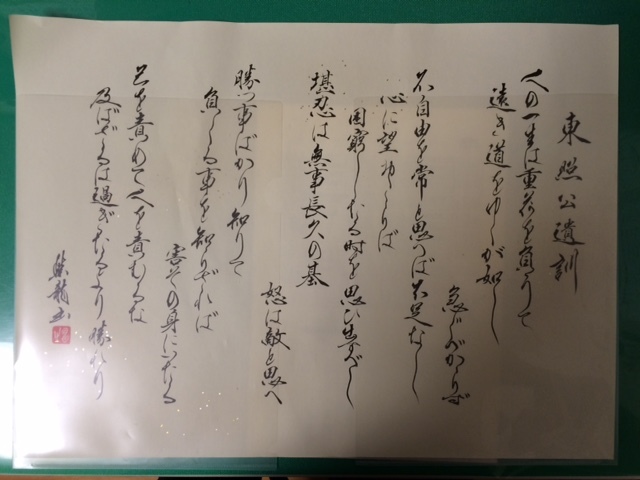 東照公遺訓
人の一生は重荷を負うて
遠き道をゆくが如し
急ぐべからず
不自由を常と思へば不足なし
心に望おこらば
困窮したる時を思ひ出すべし
堪忍は無事長久の基
怒は敵と思へ
勝つ事ばかり知りて
負くる事を知らざれば
害その身にいたる
己を責めて人を責むるな
及ばざるは過ぎたるより勝れり